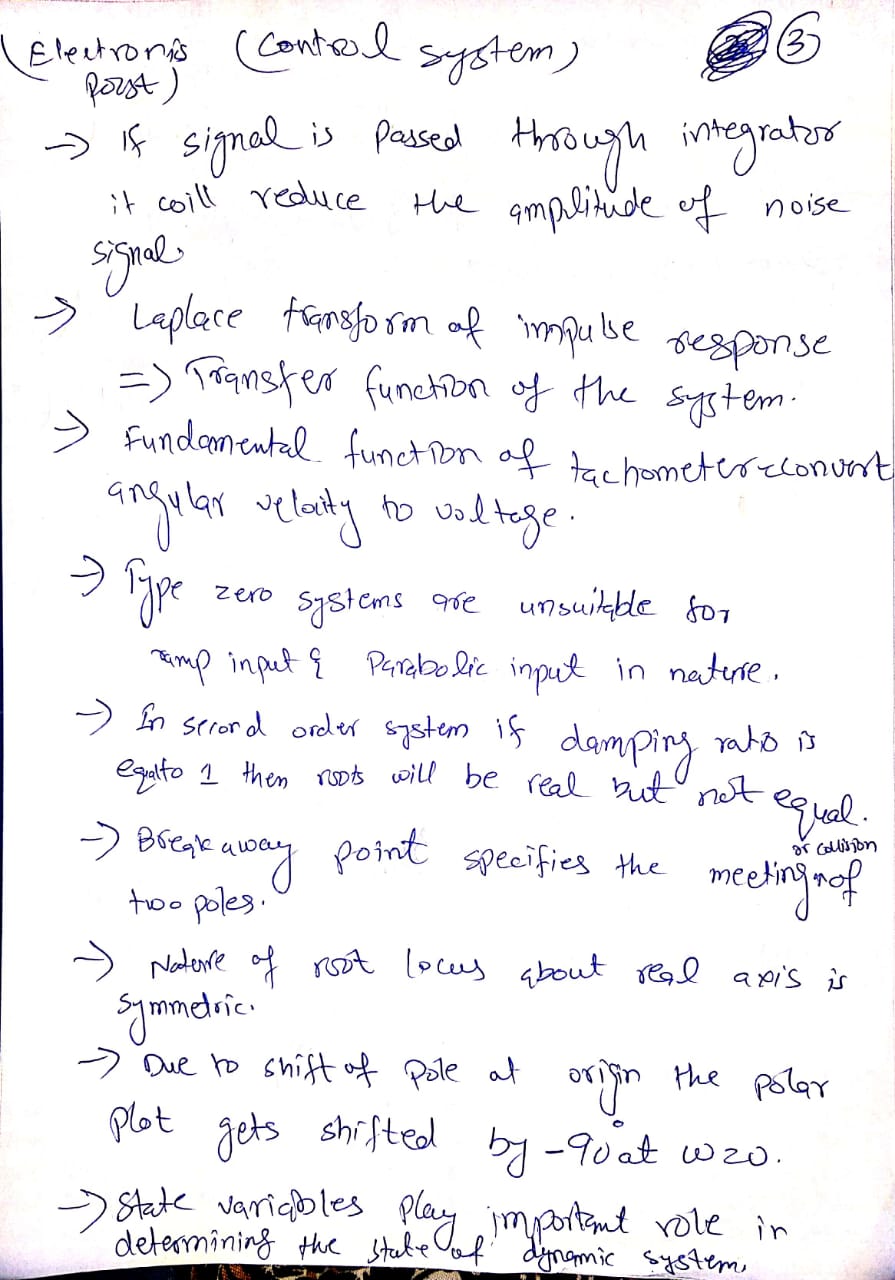 (Electronis (Control system) ③
Post)
→ If signal is Passed through integrator
it will reduce the amplitude of noise
signal.
→ Laplace transform of impulse response
=> Transfer function of the system.
→ Fundamental function of tachometer = convert
angular velocity to voltage.
→ Type zero systems are unsuitable for
ramp input & Parabolic input in nature.
→ In second order system if damping ratio is
equalto 1 then roots will be real but not equal.
→ Breakaway point specifies the meeting or collision of
two poles.
→ Nature of root locus about real axis is
symmetric.
→ Due to shift of pole at origin the polar
plot gets shifted by -90° at w=0.
→ State variables play important role in
determining the state of dynamic system,